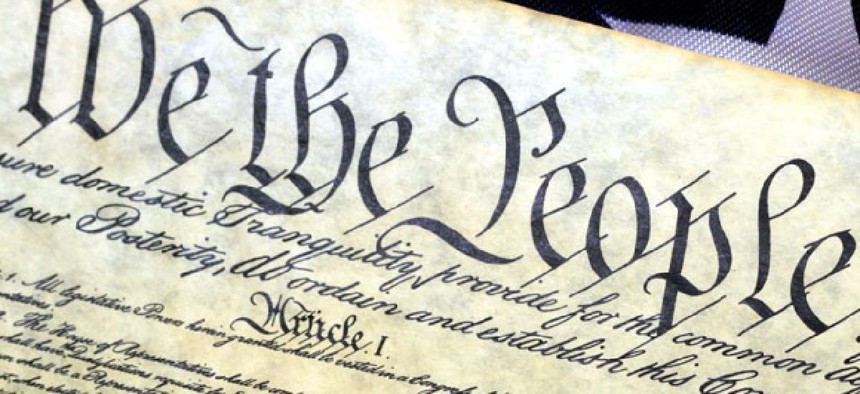 We the People
sure domestic Tranquility, provide for the common
our Posterity, do ordain and establish this
Article. I.
1. All legislative Powers herein granted shall be vested in a Congress
The House of Representatives shall be
shall be a Representative